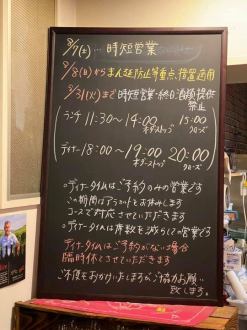 8/7(土)…時短営業
8/8(日)からまん延防止等重点措置適用
8/31(火)まで時短営業・終日酒類提供
禁止
ランチ 11:30〜14:00 15:00
オーダーストップ クローズ
ディナー 18:00〜19:00 20:00
オーダーストップ クローズ
○ディナータイムはご予約のみの営業です
この期間はアラカルトをお休みします
コースで対応させていただきます
○ディナータイムは席数を減らしての営業です
ディナータイムはご予約がない場合
臨時休とさせていただきます
ご不便をおかけいたしますが、ご協力お願い
致します。